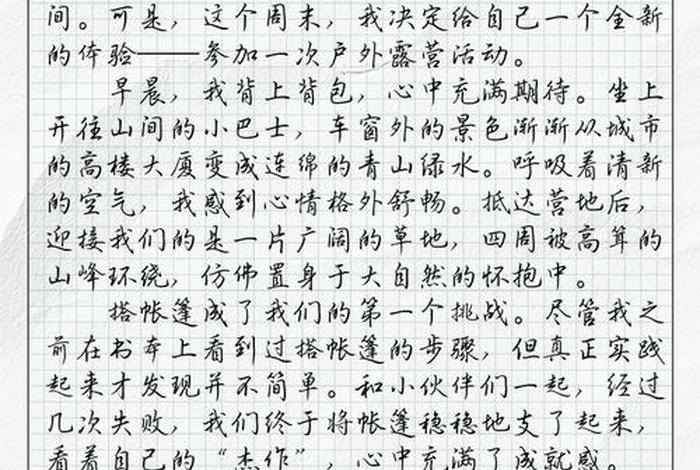 间。可是，这个周末，我决定给自己一个全新
的体验——参加一次户外露营活动。
早晨，我背上背包，心中充满期待。坐上
开往山间的小巴士，车窗外的景色渐渐从城市
的高楼大厦变成连绵的青山绿水。呼吸着清新
的空气，我感到心情格外舒畅。抵达营地后，
迎接我们的是一片广阔的草地，四周被高耸的
山峰环绕，仿佛置身于大自然的怀抱中。
搭帐篷成了我们的第一个挑战。尽管我之
前在书本上看到过搭帐篷的步骤，但真正实践
起来才发现并不简单。和小伙伴们一起，经过
几次失败，我们终于将帐篷稳稳地支了起来，
看着自己的“杰作”，心中充满了成就感。